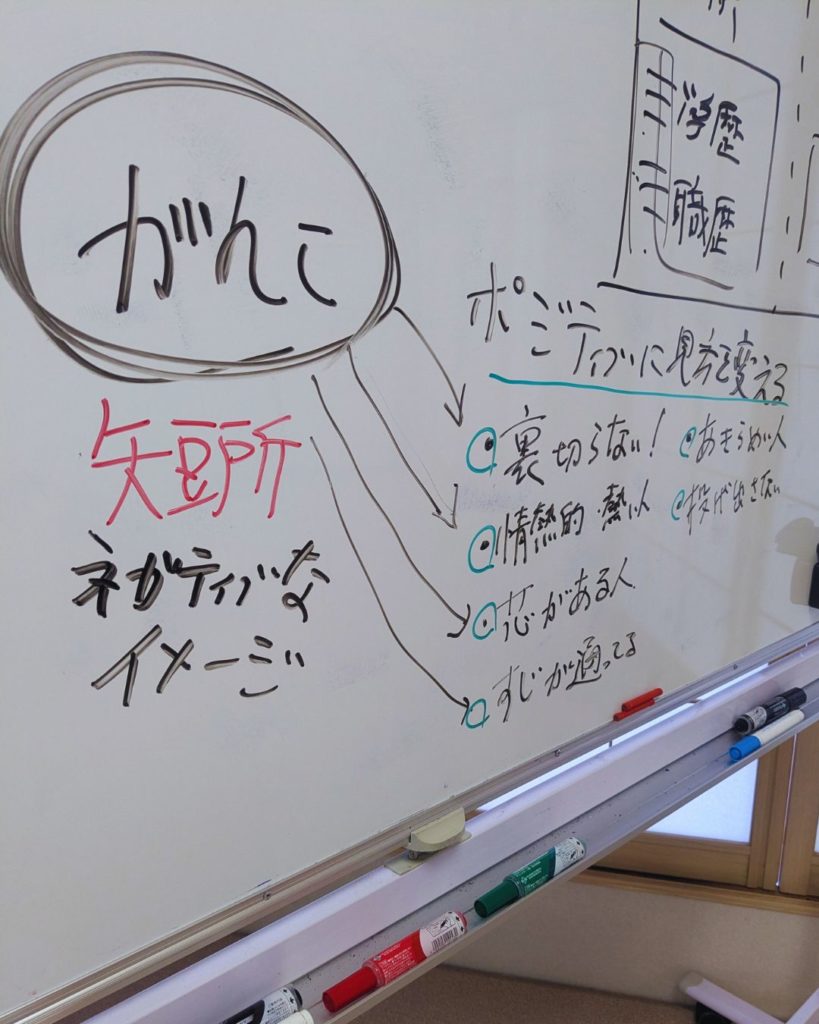 学歴
職歴
がんこ
ポジティブに見方を変える
矢豆所
ネガティブな
イメージ
裏切らない!
あきらめない人
情熱的・熱い人
投げ出さない
芯がある人
すじが通ってる